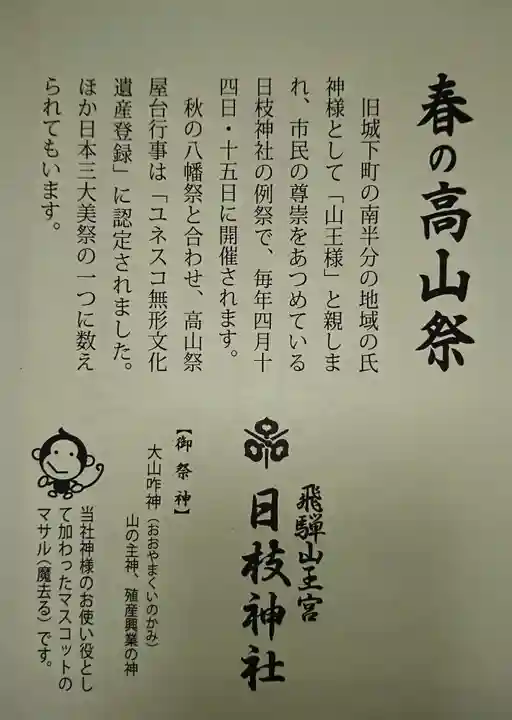 春の高山祭
旧城下町の南半分の地域の氏
神様として「山王様」と親しま
れ、市民の尊崇をあつめている
日枝神社の例祭で、毎年四月十
四日・十五日に開催されます。
秋の八幡祭と合わせ、高山祭
屋台行事は「ユネスコ無形文化
遺産登録」に認定されました。
ほか日本三大美祭の一つに数え
られてもいます。
飛騨山王宮
日枝神社
【御祭神】
大山咋神（おおやまくいのかみ）
山の主神、殖産興業の神
当社神様のお使い役とし
て加わったマスコットの
マサル（魔去る）です。